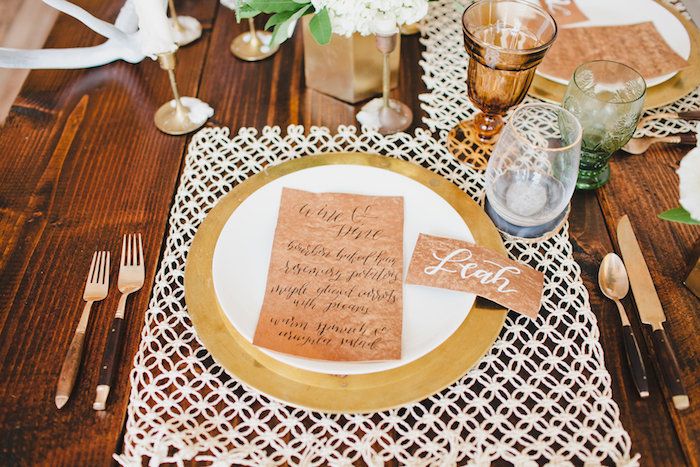 wine &
Dine
bourbon baked ham
rosemary potatoes
maple glazed carrots
with pecans
warm spinach &
arugula salad
Leah